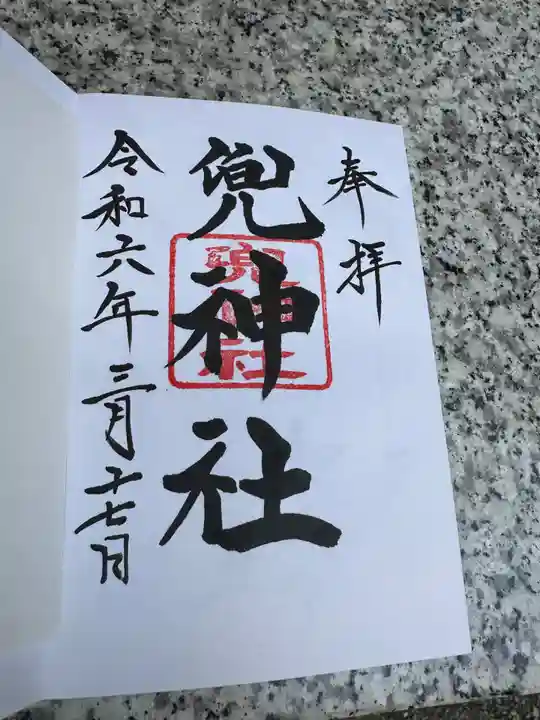 奉拝
兜神社
兜神社
令和六年三月十七日